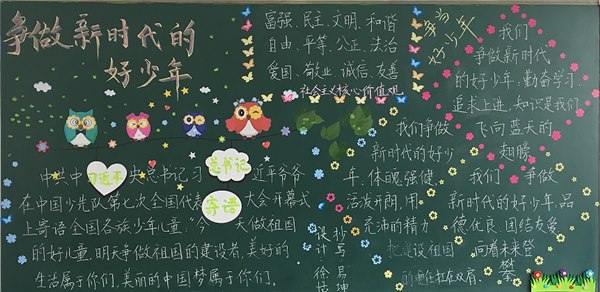 争做新时代的
好少年
富强、民主、文明、和谐
自由、平等、公正、法治
爱国、敬业、诚信、友善
社会主义核心价值观
争当
好少年
习近平
总书记
寄语
中共中央总书记习近平爷爷
在中国少先队第七次全国代表大会开幕式
上寄语全国各族少年儿童:“今天做祖国
的好儿童,明天争做祖国的建设者,美好的
生活属于你们,美丽的中国梦属于你们。
我们争做
新时代的好少
年,体魄强健
活泼开朗,用
充沛的精力
把建设祖国
的重任扛在双肩。
我们
争做新时代
的好少年,勤奋学习
追求上进,知识是我们
飞向蓝天的
翅膀
我们争做
新时代的好少年,品
德优良,团结友爱
向着未来登
攀
设计
抄写